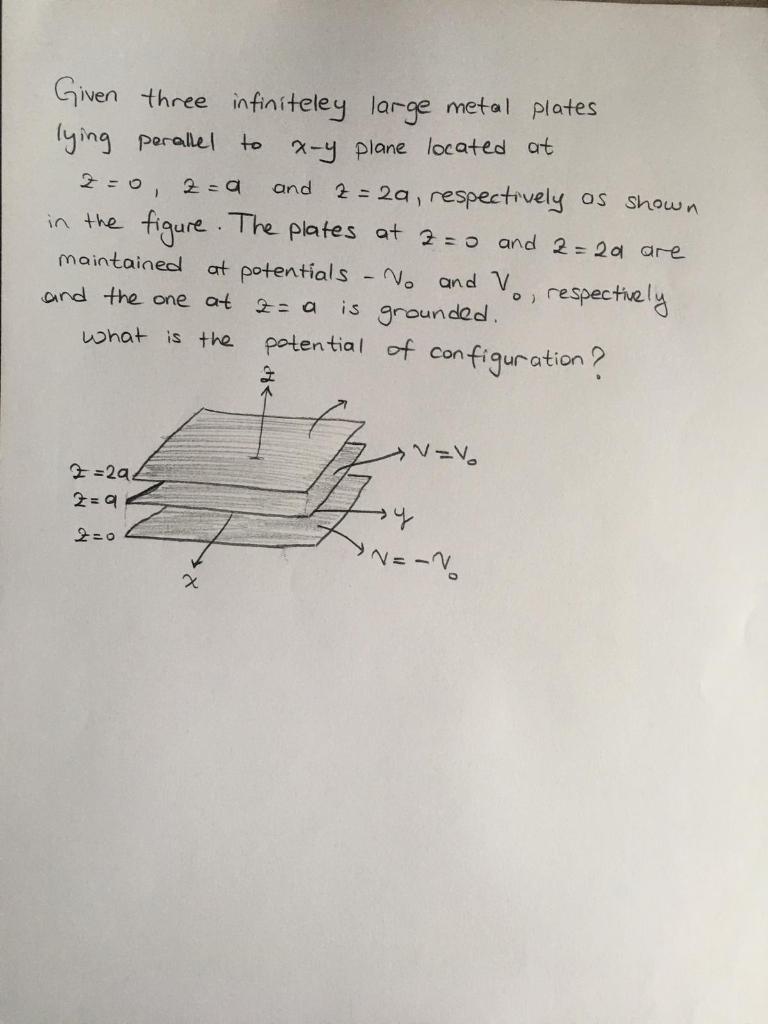 Given three infiniteley large metal plates
lying parallel to x-y plane located at
z=0, z=a and z=2a, respectively as shown
in the figure. The plates at z=0 and z=2a are
maintained at potentials -V₀ and V₀, respectively
and the one at z=a is grounded.
What is the potential of configuration?
z
V=V₀
z=2a
z=a
y
z=0
V=-V₀
x